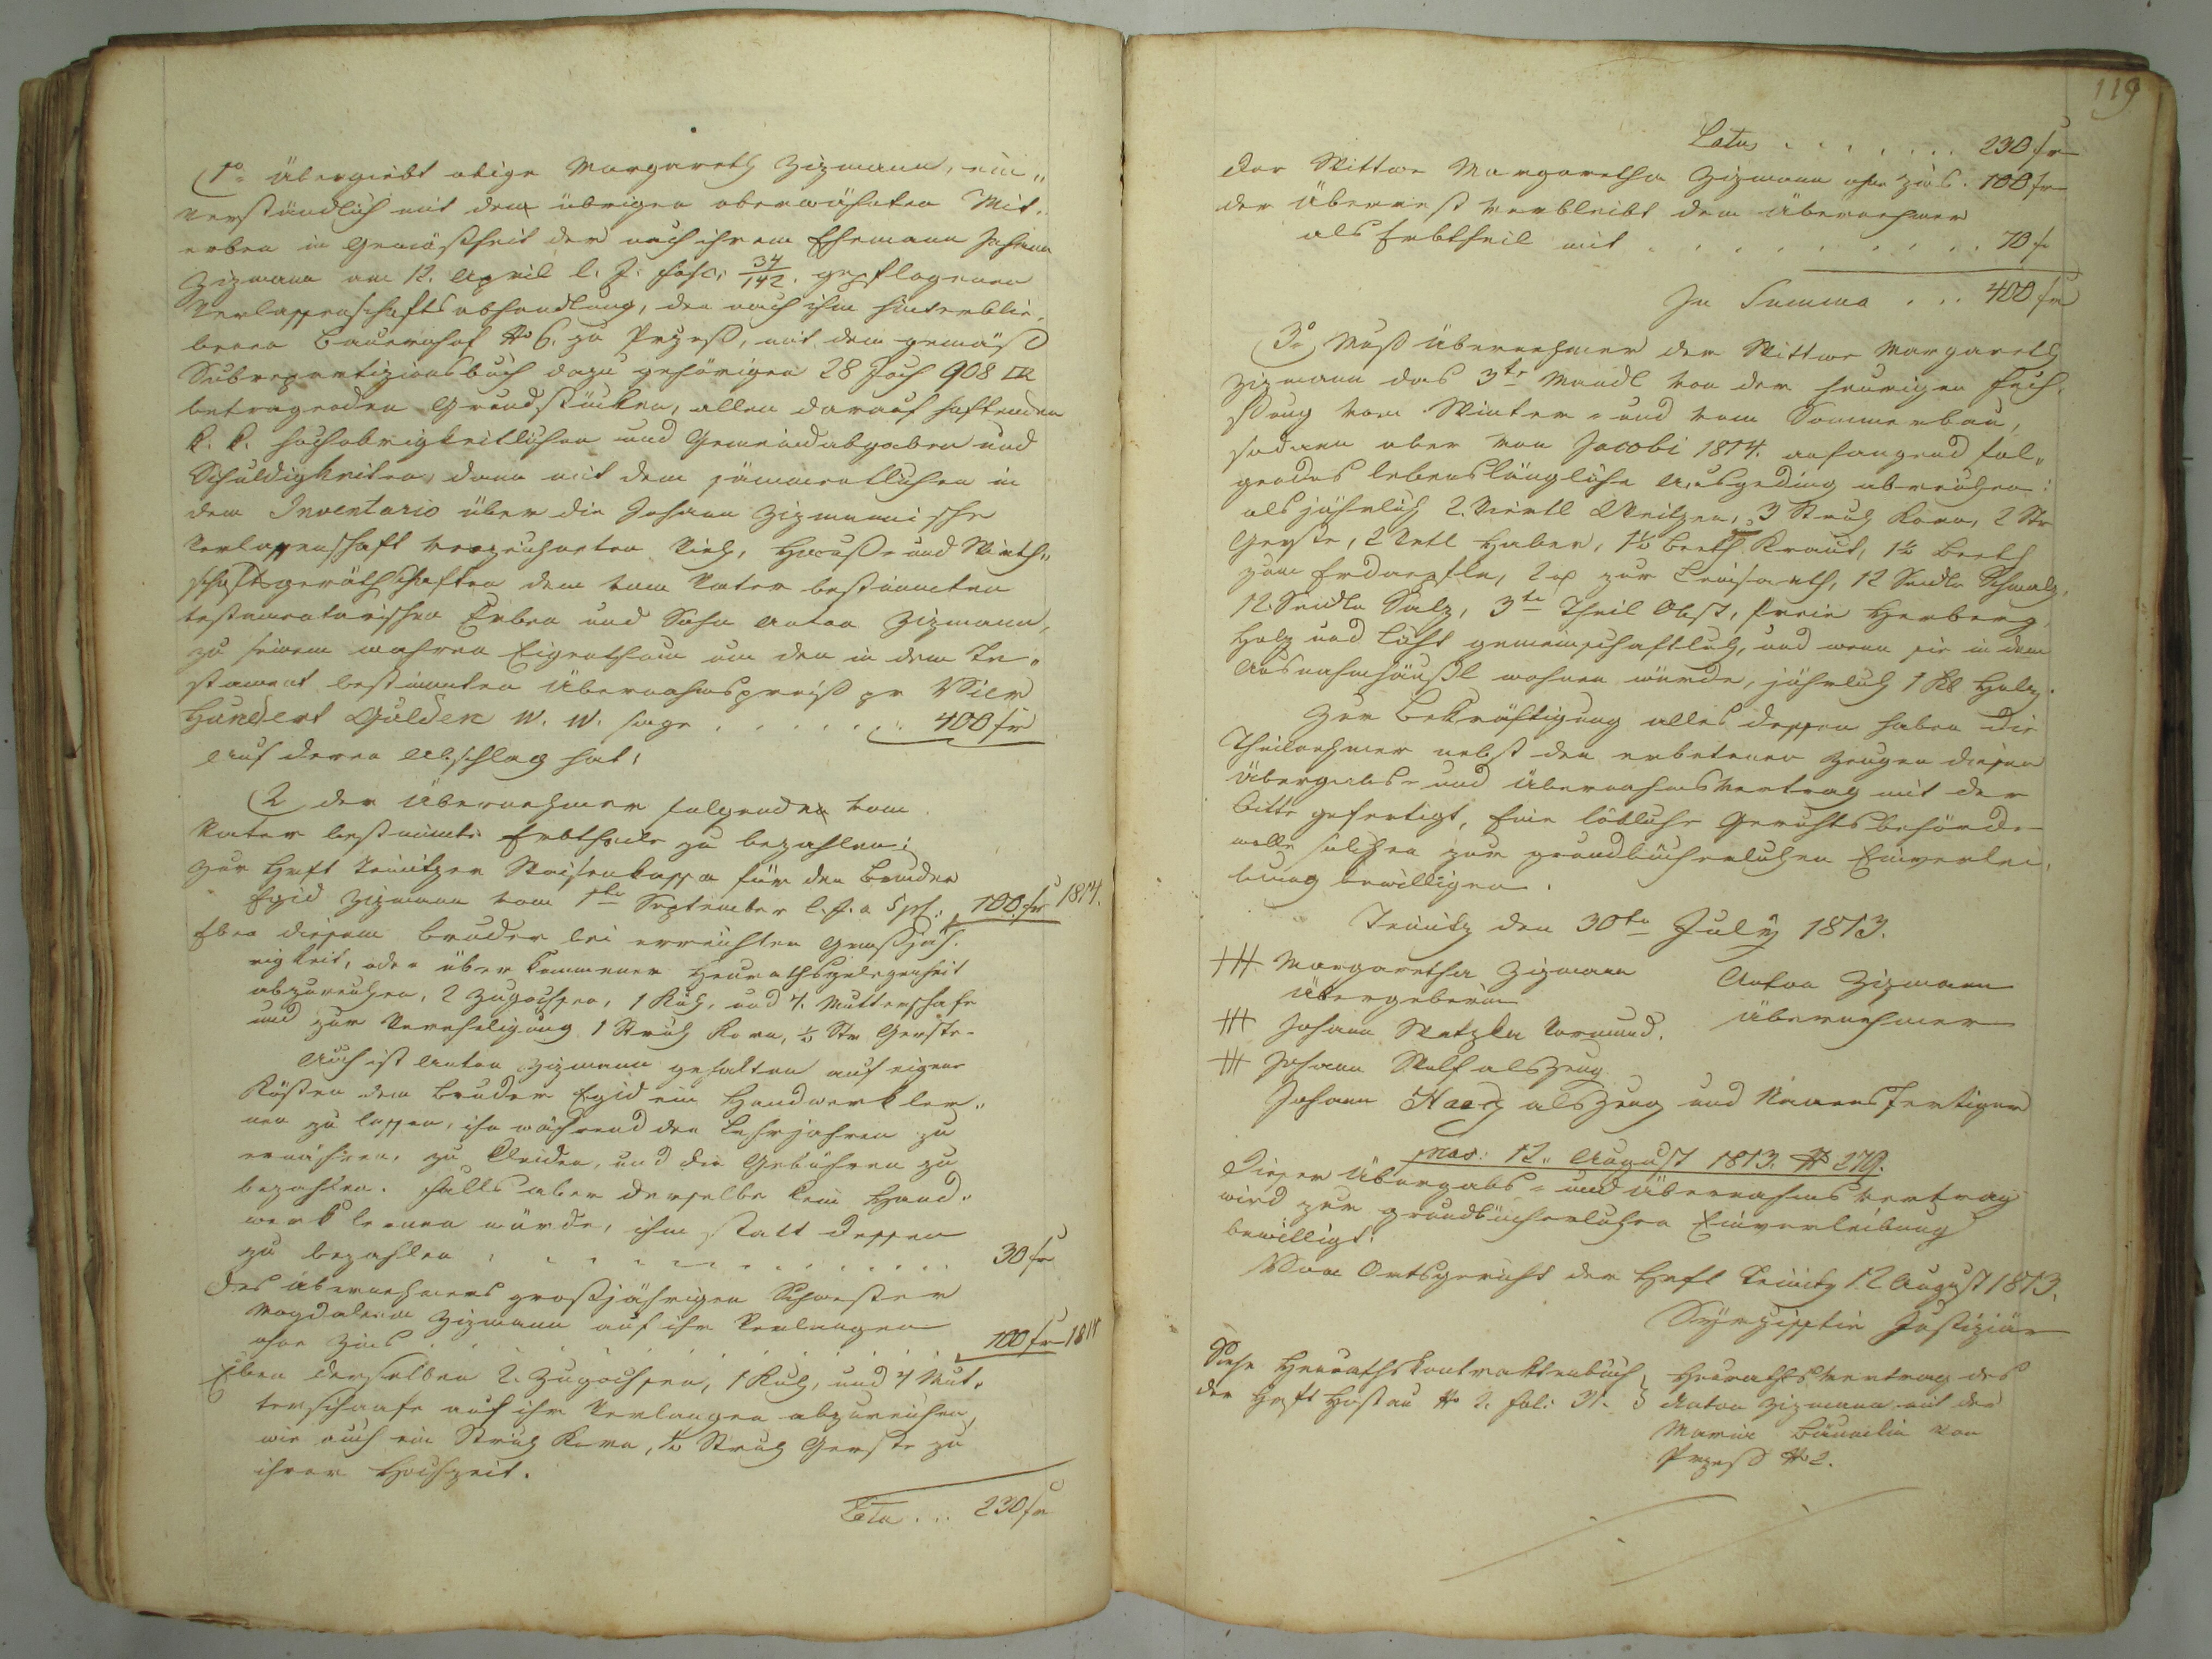 1o übergiebt obige Margareth Zizmann, ein„
verständlich mit den übrigen oberwähnten Mit„
erben in Gemäßheit der nach ihrem Ehemann Johann
Zizmann am 12. April l. J. fasc. 34/142. gepflogenen
Verlassenschaftsabhandlung, den nach ihm hinterblie„
benen Bauernhof No 6. zu Przeß, mit dem gemäß
Subrepartizionsbuch dazu gehörigen 28 Joch 908
betragenden Grundstücken, allen darauf haftenden
k. k. hochobrigkeitlichen und Gemeindabgaben und
Schuldigkeiten, dann mit dem sämmentlichen in
dem Inventario über die Johann Zizmannische
Verlassenschaft verzeichneten Vieh, Hauß- und Wirth„
schaftsgeräthschaften dem vom Vater bestimmten
testamentarischen Erben und Sohn Anton Zizmann,
zu seinem wahren Eigenthum um den in dem Te„
stament bestimmten Übernahmspreiß pr Vier
Hundert Gulden W. W. sage . . . . . . 400 fr
auf deren Abschlag hat:
2 der Übernehmer folgenden vom
Vater bestimmte Erbtheile zu bezahlen:
zur Hrft Teinitzer Waisenkassa für den Bruder
Egid Zizmann vom 1ten September l. J. a 5 pf. 100 fr 1814.
Eben diesem Bruder bei erreichten Großjäh„
rigkeit, oder überkommener Heurathsgelegenheit
abzureichen, 2 Zugochsen, 1 Kuh, und 4. Mutterschafe
und zur Verehligung 1 Strich Korn, ½ Str Gerste.
Auch ist Anton Zizmann gehalten auf eigene
Kösten dem Bruder Egid ein Handwerk ler„
nen zu lassen, ihn während den Lehrjahren zu
ernähren, zu kleiden, und die Gebühren zu
bezahlen. Falls aber derselbe kein Hand„
werk lernen würde, ihm statt dessen
zu bezahlen . . . . . . . . . . . 30 fr
Des Übernehmers großjährigen Schwester
Magdalena Zizmann auf ihr Verlangen
ohne Zins . . . . . . . . . . 100 fr
Eben derselben 2. Zugochsen, 1 Kuh, und 4 Mut„
terschaafe auf ihr Verlangen abzureichen,
wie auch ein Strich Korn, ½ Strich Gerste zu
ihrer Hochzeit.
Latus . . . 230 fr
119
Latus . . . . . . . 230 fr
der Wittwe Margaretha Zizmann ohne Zins. 100 fr
der Überrest verbleibt dem Übernehmer
als Erbtheil mit . . . . . . . . . 70 fr
In Summa . . . 400 fr
3o Muß Übernehmer der Wittwe Margareth
Zizmann das 3te Mandl von der heurigen Fech„
sung vom Winter- und vom Sommerbau,
sodann aber von Jacobi 1814. anfangend fol„
gendes lebenslängliche Ausgeding abreichen:
als jährlich 2. Viertl Weitzen, 3 Strich Korn, 2 Str
Gerste, 2 Vrtl Haber, 1½ Beeth Kraut, 1½ Beeth
zum Erdaepfeln, zur Leinsaath, 12 Seidln Schmalz,
12. Seidln Salz, 3te Theil Obst, freie Herberg,
Holz und Licht gemeinschaftlich, und wenn sie in dem
Ausnahmhäußl wohnen würde, jährlich 1 Kl Holz.
Zur Bekräftigung alles dessen haben die
Theilnehmer nebst den erbetenen Zeugen diesen
Übergabs- und Übernahmsvertrag mit der
Bitte gefertigt, Eine löbliche Gerichtsbehörde
wolle solchen zur grundbücherlichen Einverlei„
bung bewilligen.
Teinitz den 30ten July 1813.
+++ Margaretha Zizmann
Übergeberin
Anton Zizmann
Übernehmer
+++ Johann Watzka Vormund.
+++ Johann Wolf als Zeug
Johann Haas als Zeug und Namensfertiger
pras: 12. August 1813. No 279.
Dieser Übergabs- und Übernahmsvertrag
wird zur grundbücherlichen Einverleibung
bewilligt.
Vom Ortsgericht der Hrft Teinitz 12 August 1813.
Justiziär
Siehe Heurathskontraktenbuch
der Hrft Hostau No 2. fol: 31.
Heurathsvertrag des
Anton Zizmann mit der
Maria von
Przeß No 2.